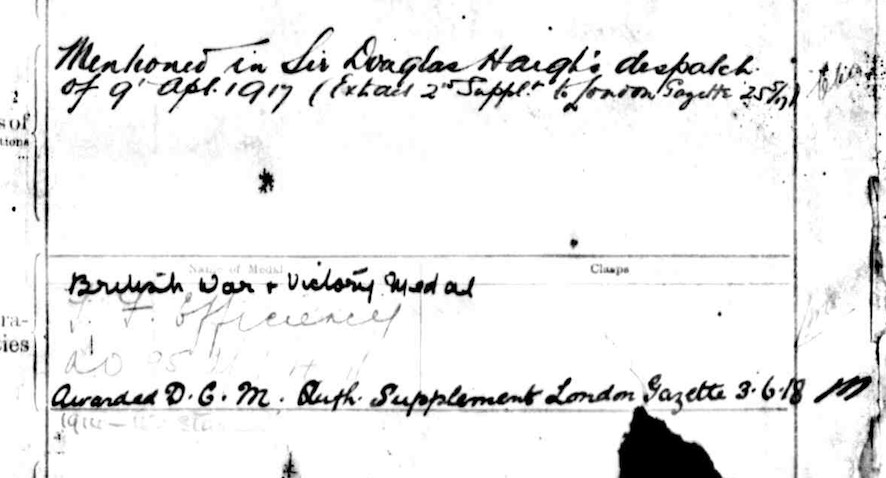 Mentioned in Sir Douglas Haigh's despatch
of 9th Apl. 1917 (Extract 2nd Supplt to London Gazette 25/5/17)
s of
tions
Name of Medal Clasps
British War + Victory Medal
T. F. Efficiency
ra-
ties
AO
Awarded D. C. M. Auth. Supplement London Gazette 3.6.18
1914-15 Star